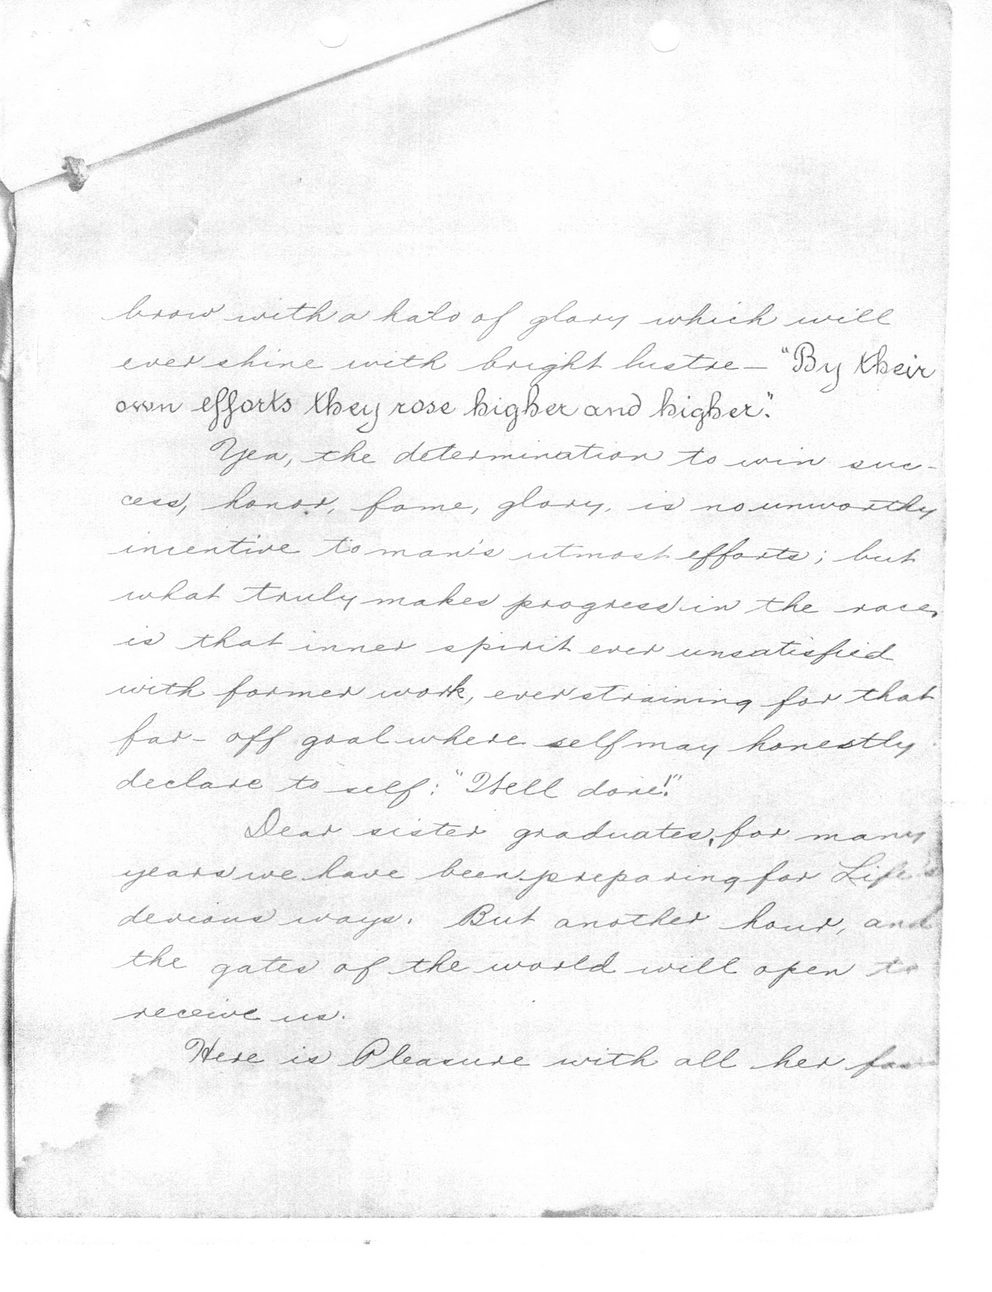 brow with a halo of glory which will
ever shine with bright lustre— "By their
own efforts they rose higher and higher".
Yea, the determination to win suc-
cess, honor, fame, glory, is no unworthy
incentive to man's utmost efforts; but
what truly makes progress in the race,
is that inner spirit ever unsatisfied
with former work, ever straining for that
far-off goal where self may honestly
declare to self: "Well done!"
Dear sister graduates, for many
years we have been preparing for Life's
devious ways. But another hour, and
the gates of the world will open to
receive us.
Here is Pleasure with all her